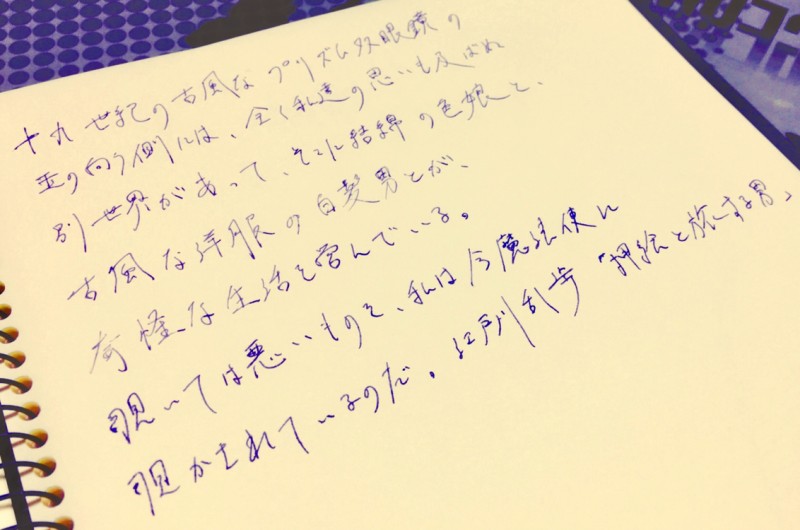 十九世紀の古風なプリズム双眼鏡の
玉の向う側には、全く私達の思いも及ばぬ
別世界があって、そこに結綿の色娘と、
古風な洋服の白髪男とが、
奇怪な生活を営んでいる。
覗いては悪いものを、私は今魔法使に
覗かされているのだ。江戸川乱歩「押絵と旅する男」